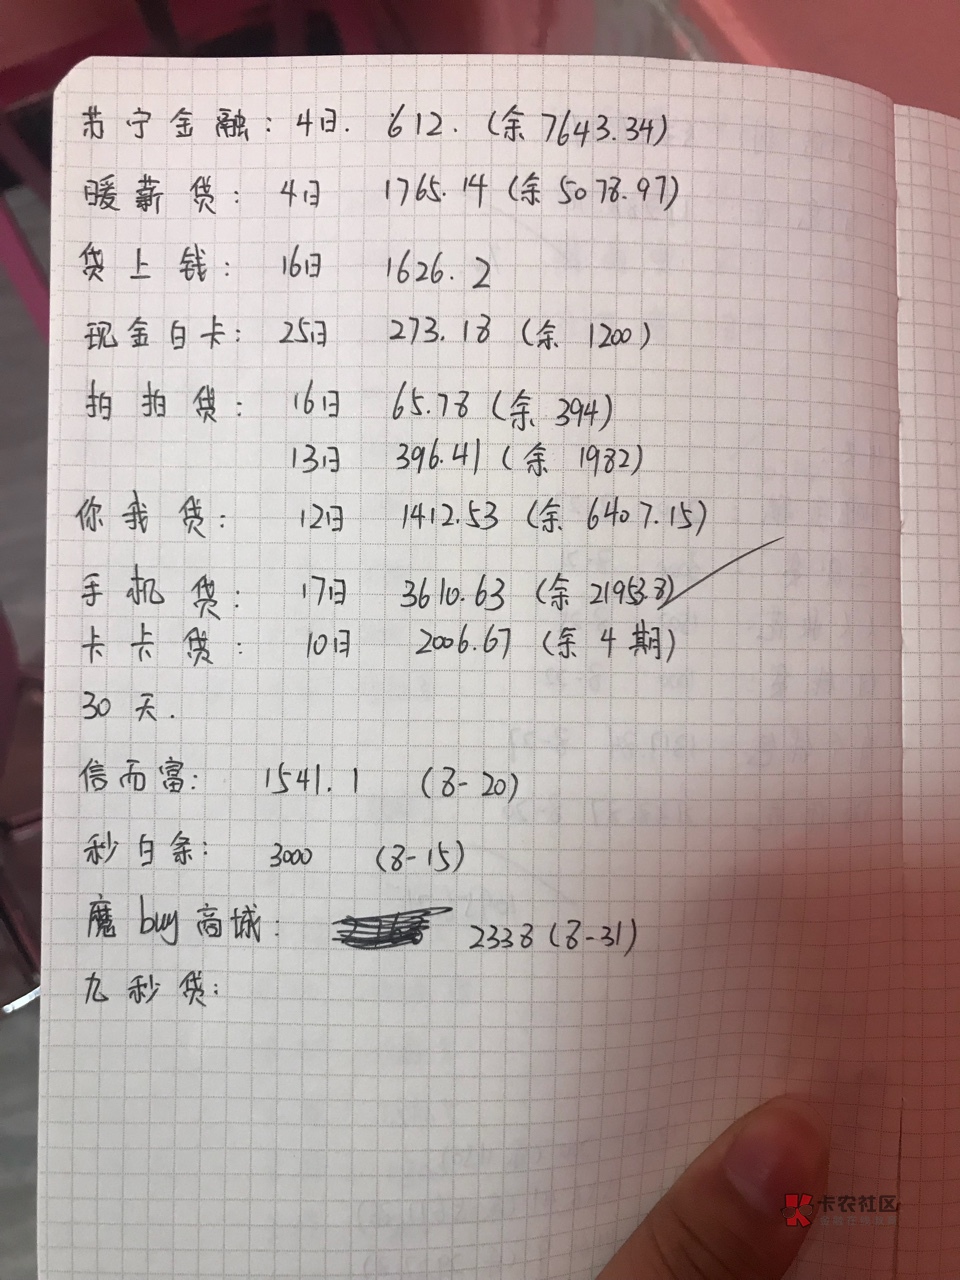 苏宁金融: 4日. 612. (余 7643.34)
暖薪贷: 4日 1765.14 (余 5078.97)
贷上钱: 16日 1626.2
现金白卡: 25日 273.18 (余 1200)
拍拍贷: 16日 65.78 (余 394)
13日 396.41 (余 1982)
你我贷: 12日 1412.53 (余 6407.15)
手机贷: 17日 3610.63 (余 21953.8)
卡卡贷: 10日 2006.67 (余 4期)
30天.
信而富: 1541.1 (8-20)
秒白条: 3000 (8-15)
魔buy商城: 2338 (8-31)
九秒贷:
卡农社区